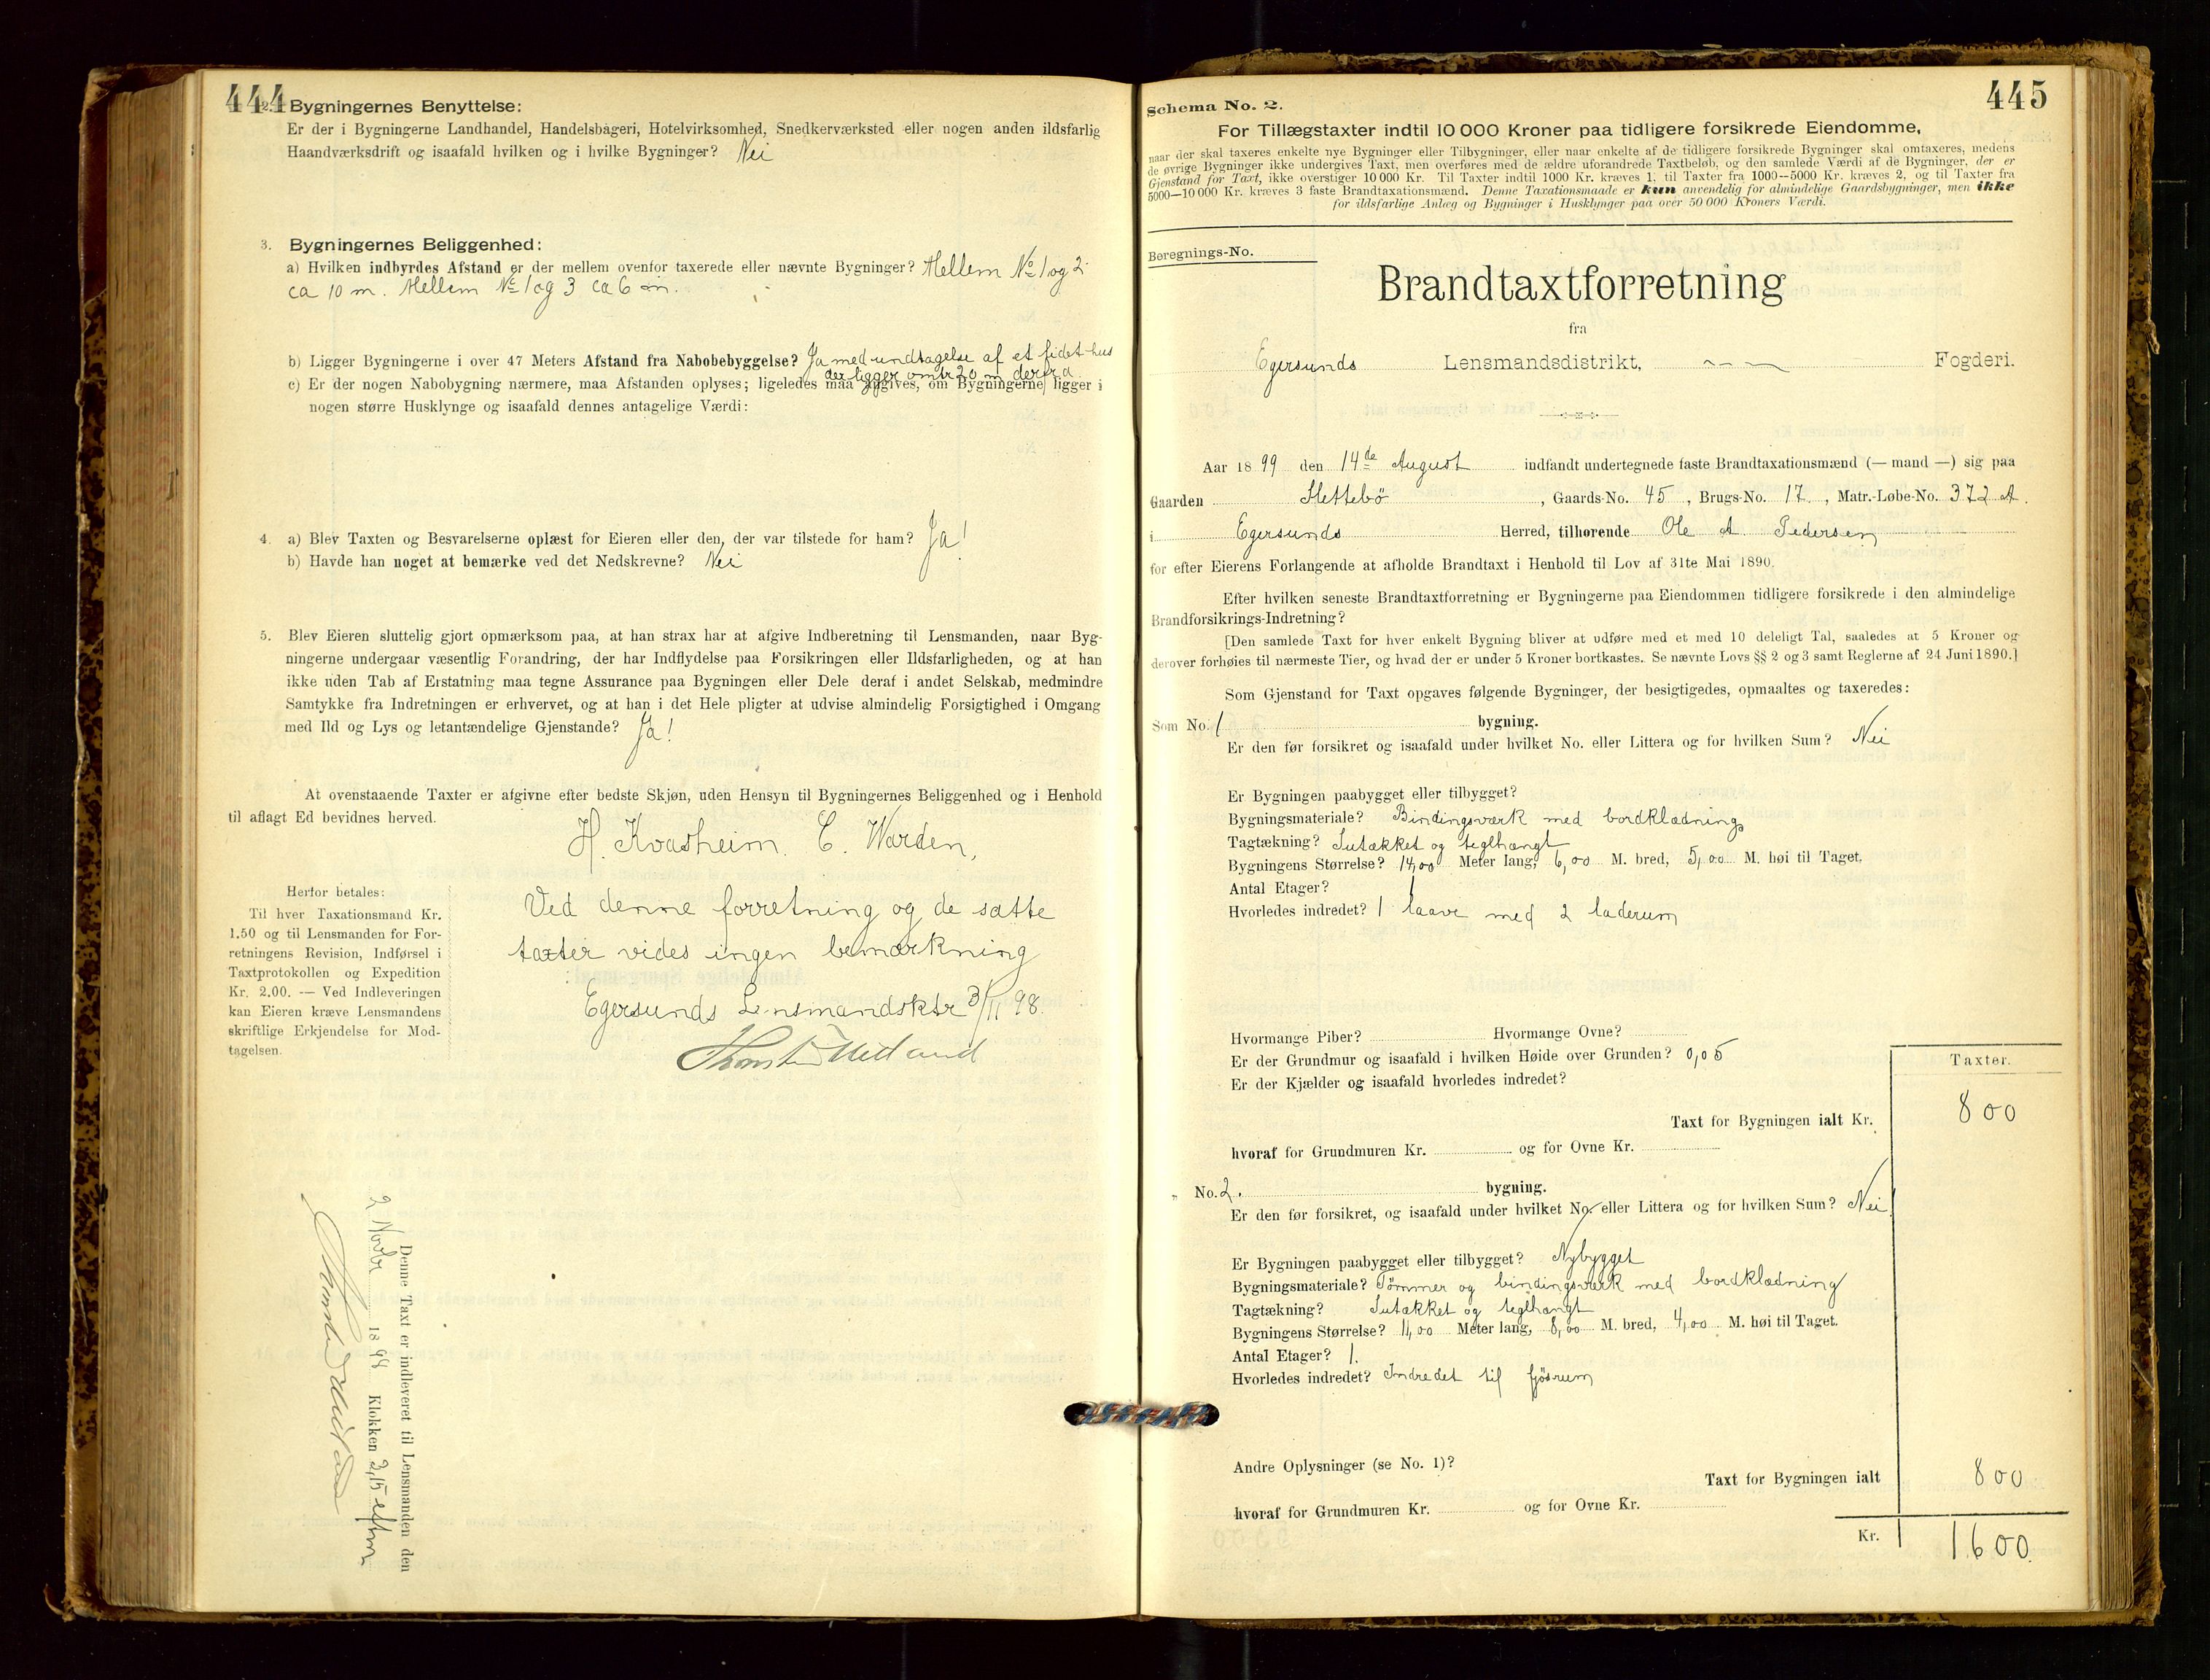 444
2. Bygningernes Benyttelse:
Er der i Bygningerne Landhandel, Handelsbageri, Hotelvirksomhed, Snedkerværksted eller nogen anden ildsfarlig
Haandværksdrift og isaafald hvilken og i hvilke Bygninger? Nei
3. Bygningernes Beliggenhed:
a) Hvilken indbyrdes Afstand er der mellem ovenfor taxerede eller nævnte Bygninger? Mellem No 1 og 2
ca 10 m. Mellem No 1 og 3 ca 6 m.
b) Ligger Bygningerne i over 47 Meters Afstand fra Nabobebyggelse? Ja med undtagelse af et fidet hus
der ligger omtr 20 m derfra.
c) Er der nogen Nabobygning nærmere, maa Afstanden oplyses; ligeledes maa opgives, om Bygningerne ligger i
nogen større Husklynge og isaafald dennes antagelige Værdi:
4. a) Blev Taxten og Besvarelserne oplæst for Eieren eller den, der var tilstede for ham? Ja!
b) Havde han noget at bemærke ved det Nedskrevne? Nei
5. Blev Eieren sluttelig gjort opmærksom paa, at han strax har at afgive Indberetning til Lensmanden, naar Byg-
ningerne undergaar væsentlig Forandring, der har Indflydelse paa Forsikringen eller Ildsfarligheden, og at han
ikke uden Tab af Erstatning maa tegne Assurance paa Bygningen eller Dele deraf i andet Selskab, medmindre
Samtykke fra Indretningen er erhvervet, og at han i det Hele pligter at udvise almindelig Forsigtighed i Omgang
med Ild og Lys og letantændelige Gjenstande? Ja!
At ovenstaaende Taxter er afgivne efter bedste Skjøn, uden Hensyn til Bygningernes Beliggenhed og i Henhold
til aflagt Ed bevidnes herved.
H. Kvasheim. C. Warden,
Herfor betales:
Til hver Taxationsmand Kr.
1.50 og til Lensmanden for For-
retningens Revision, Indførsel i
Taxtprotokollen og Expedition
Kr. 2.00. — Ved Indleveringen
kan Eieren kræve Lensmandens
skriftlige Erkjendelse for Mod-
tagelsen.
Ved denne forretning og de satte
taxter vides ingen bemærkning
Egersunds Lensmandsktr 3/11 98.
Denne Taxt er indleveret til Lensmanden den
2 Novbr 1898 Klokken 2,15 efterm
445
Schema No. 2.
For Tillægstaxter indtil 10 000 Kroner paa tidligere forsikrede Eiendomme,
naar der skal taxeres enkelte nye Bygninger eller Tilbygninger, eller naar enkelte af de tidligere forsikrede Bygninger skal omtaxeres, medens
de øvrige Bygninger ikke undergives Taxt, men overføres med de ældre uforandrede Taxtbeløb, og den samlede Værdi af de Bygninger, der er
Gjenstand for Taxt, ikke overstiger 10 000 Kr. Til Taxter indtil 1000 Kr. kræves 1, til Taxter fra 1000—5000 Kr. kræves 2, og til Taxter fra
5000—10 000 Kr. kræves 3 faste Brandtaxationsmænd. Denne Taxationsmaade er kun anvendelig for almindelige Gaardsbygninger, men ikke
for ildsfarlige Anlæg og Bygninger i Husklynger paa over 50 000 Kroners Værdi.
Beregnings-No.
Brandtaxtforretning
fra
Egersunds Lensmandsdistrikt, Fogderi.
Aar 1899 den 14de August indfandt undertegnede faste Brandtaxationsmænd (— mand —) sig paa
Gaarden Slettebö, Gaards-No. 45, Brugs-No. 17, Matr.-Løbe-No. 372 A.
i Egersunds Herred, tilhørende Ole A. Pedersen
for efter Eierens Forlangende at afholde Brandtaxt i Henhold til Lov af 31te Mai 1890.
Efter hvilken seneste Brandtaxtforretning er Bygningerne paa Eiendommen tidligere forsikrede i den almindelige
Brandforsikrings-Indretning?
[Den samlede Taxt for hver enkelt Bygning bliver at udføre med et med 10 deleligt Tal, saaledes at 5 Kroner og
derover forhøies til nærmeste Tier, og hvad der er under 5 Kroner bortkastes. Se nævnte Lovs §§ 2 og 3 samt Reglerne af 24 Juni 1890.]
Som Gjenstand for Taxt opgaves følgende Bygninger, der besigtigedes, opmaaltes og taxeredes:
Som No. 1 bygning.
Er den før forsikret og isaafald under hvilket No. eller Littera og for hvilken Sum? Nei
Er Bygningen paabygget eller tilbygget?
Bygningsmateriale? Bindingsværk med bordklædning
Tagtækning? Sutækket og teglhængt
Bygningens Størrelse? 14,00 Meter lang, 6,00 M. bred, 5,00 M. høi til Taget.
Antal Etager? 1
Hvorledes indredet? 1 laave med 2 laderum
Hvormange Piber? Hvormange Ovne?
Er der Grundmur og isaafald i hvilken Høide over Grunden? 0,05
Er der Kjælder og isaafald hvorledes indredet?
Taxter.
Taxt for Bygningen ialt Kr. 800
hvoraf for Grundmuren Kr. og for Ovne Kr.
" No. 2. bygning.
Er den før forsikret, og isaafald under hvilket No. eller Littera og for hvilken Sum? Nei
Er Bygningen paabygget eller tilbygget? Nybygget
Bygningsmateriale? Tömmer og bindingsværk med bordklædning
Tagtækning? Sutækket og teglhængt
Bygningens Størrelse? 11,00 Meter lang, 8,00 M. bred, 4,00 M. høi til Taget.
Antal Etager? 1.
Hvorledes indredet? Indredet til fjösrum
Andre Oplysninger (se No. 1)?
Taxt for Bygningen ialt 800
hvoraf for Grundmuren Kr. og for Ovne Kr.
Kr. 1600